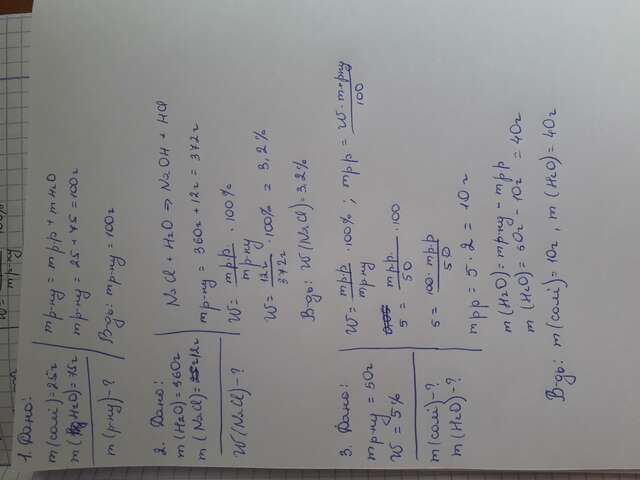 W = 100%
mр-ну
1. Дано:
m(солі)=25г
m(H2O)=75г
m(р-ну)-?
mр-ну = mрр + mH2O
mр-ну = 25 + 75 = 100г
В-дь: mр-ну = 100г
2. Дано:
m(H2O)=360г
m(NaCl)=12г
W(NaCl)-?
NaCl + H2O => NaOH + HCl
mр-ну = 360г + 12г = 372г
W = mрр / mр-ну · 100%
W = 12г / 372г · 100% = 3,2%
В-дь: W(NaCl) = 3,2%
3. Дано:
mр-ну = 50г
W = 5%
m(солі)-?
m(H2O)-?
W = mрр / mр-ну · 100% ; mрр = W · mр-ну / 100
5 = mрр / 50 · 100
5 = 100 · mрр / 50
mрр = 5 · 2 = 10г
m(H2O) = mр-ну - mрр
m(H2O) = 50г - 10г = 40г
В-дь: m(солі) = 10г, m(H2O) = 40г